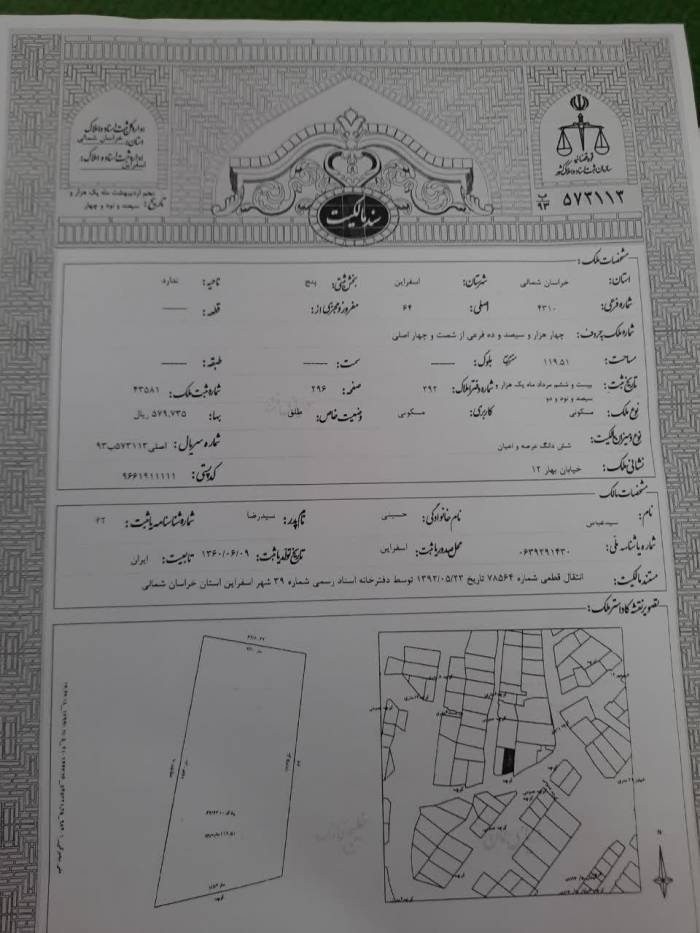 قوه قضائیه
سازمان ثبت اسناد و املاک کشور
۵۷۳۱۱۳ ب ۹۳
اداره کل ثبت اسناد و املاک
استان: خراسان شمالی
اداره ثبت اسناد و املاک:
اسفراین
تاریخ: پنجم اردیبهشت ماه یک هزار و
سیصد و نود و چهار
سند مالکیت
مشخصات ملک:
استان: خراسان شمالی شهرستان: اسفراین بخش ثبتی: پنج ناحیه: ندارد
شماره فرعی: ۴۳۱۰ اصلی: ۶۴ مفروز و مجزی از: قطعه: ——
شماره ملک بحروف: چهار هزار و سیصد و ده فرعی از شصت و چهار اصلی
مساحت: ۱۱۹.۵۱ مترمربع بلوک: —— سمت: —— طبقه: ——
تاریخ ثبت: بیست و ششم مرداد ماه یک هزار و سیصد و نود و دو شماره دفتر املاک: ۲۹۲ صفحه: ۲۹۶ شماره ثبت ملک: ۴۳۵۸۱
نوع ملک: مسکونی کاربری: مسکونی وضعیت خاص: طلق بها: ۵۷۹,۷۳۵ ریال
نوع و میزان مالکیت: شش دانگ عرصه و اعیان شماره سریال: اصلی ۵۷۳۱۱۳ب۹۳
نشانی ملک: خیابان بهار ۱۲ کد پستی: ۹۶۶۱۹۱۱۱۱۱
مشخصات مالک:
نام: سیدعباس نام خانوادگی: حسینی نام پدر: سیدرضا شماره شناسنامه یا ثبت: ۶۲
شماره یا شناسه ملی: ۰۶۳۹۲۹۱۴۳۰ محل صدور یا ثبت: اسفراین تاریخ تولد یا ثبت: ۱۳۶۰/۰۶/۰۹ تابعیت: ایران
مستند مالکیت: انتقال قطعی شماره ۷۸۵۶۴ تاریخ ۱۳۹۲/۰۵/۲۲ توسط دفترخانه اسناد رسمی شماره ۳۹ شهر اسفراین استان خراسان شمالی
تصویر نقشه کاداستر ملک:
N